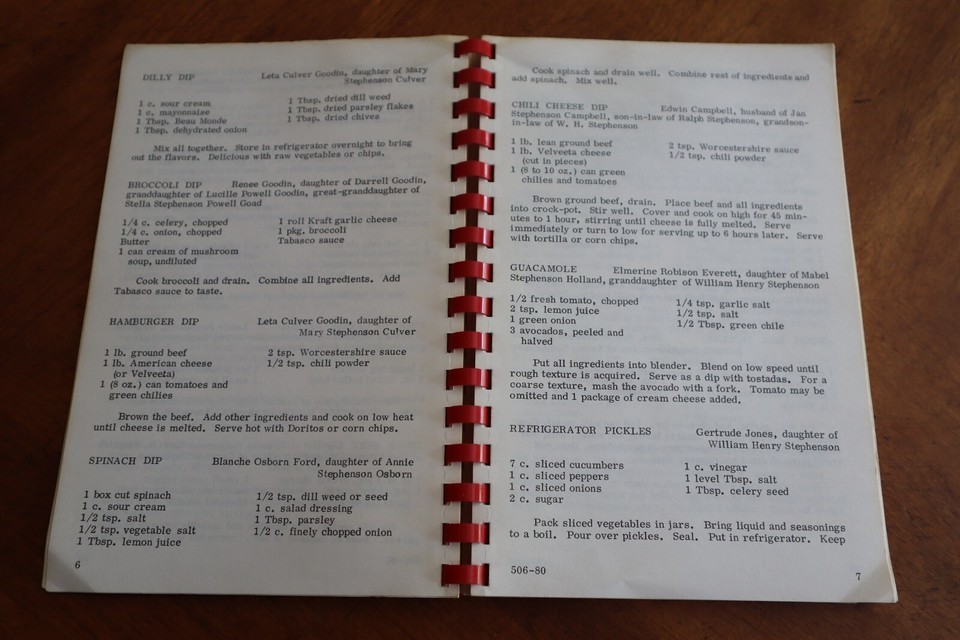 DILLY DIP Leta Culver Goodin, daughter of Mary
Stephenson Culver
1 c. sour cream
1 c. mayonnaise
1 Tbsp. Beau Monde
1 Tbsp. dehydrated onion
1 Tbsp. dried dill weed
1 Tbsp. dried parsley flakes
1 Tbsp. dried chives
Mix all together. Store in refrigerator overnight to bring
out the flavors. Delicious with raw vegetables or chips.
BROCCOLI DIP Renee Goodin, daughter of Darrell Goodin,
granddaughter of Lucille Powell Goodin, great-granddaughter of
Stella Stephenson Powell Goad
1/4 c. celery, chopped
1/4 c. onion, chopped
Butter
1 can cream of mushroom
soup, undiluted
1 roll Kraft garlic cheese
1 pkg. broccoli
Tabasco sauce
Cook broccoli and drain. Combine all ingredients. Add
Tabasco sauce to taste.
HAMBURGER DIP Leta Culver Goodin, daughter of
Mary Stephenson Culver
1 lb. ground beef
1 lb. American cheese
(or Velveeta)
1 (8 oz.) can tomatoes and
green chilies
2 tsp. Worcestershire sauce
1/2 tsp. chili powder
Brown the beef. Add other ingredients and cook on low heat
until cheese is melted. Serve hot with Doritos or corn chips.
SPINACH DIP Blanche Osborn Ford, daughter of Annie
Stephenson Osborn
1 box cut spinach
1 c. sour cream
1/2 tsp. salt
1/2 tsp. vegetable salt
1 Tbsp. lemon juice
1/2 tsp. dill weed or seed
1 c. salad dressing
1 Tbsp. parsley
1/2 c. finely chopped onion
6
Cook spinach and drain well. Combine rest of ingredients and
add spinach. Mix well.
CHILI CHEESE DIP Edwin Campbell, husband of Jan
Stephenson Campbell, son-in-law of Ralph Stephenson, grandson-
in-law of W. H. Stephenson
1 lb. lean ground beef
1 lb. Velveeta cheese
(cut in pieces)
1 (8 to 10 oz.) can green
chilies and tomatoes
2 tsp. Worcestershire sauce
1/2 tsp. chili powder
Brown ground beef, drain. Place beef and all ingredients
into crock-pot. Stir well. Cover and cook on high for 45 min-
utes to 1 hour, stirring until cheese is fully melted. Serve
immediately or turn to low for serving up to 6 hours later. Serve
with tortilla or corn chips.
GUACAMOLE Elmerine Robison Everett, daughter of Mabel
Stephenson Holland, granddaughter of William Henry Stephenson
1/2 fresh tomato, chopped
2 tsp. lemon juice
1 green onion
3 avocados, peeled and
halved
1/4 tsp. garlic salt
1/2 tsp. salt
1/2 Tbsp. green chile
Put all ingredients into blender. Blend on low speed until
rough texture is acquired. Serve as a dip with tostadas. For a
coarse texture, mash the avocado with a fork. Tomato may be
omitted and 1 package of cream cheese added.
REFRIGERATOR PICKLES Gertrude Jones, daughter of
William Henry Stephenson
7 c. sliced cucumbers
1 c. sliced peppers
1 c. sliced onions
2 c. sugar
1 c. vinegar
1 level Tbsp. salt
1 Tbsp. celery seed
Pack sliced vegetables in jars. Bring liquid and seasonings
to a boil. Pour over pickles. Seal. Put in refrigerator. Keep
506-80
7